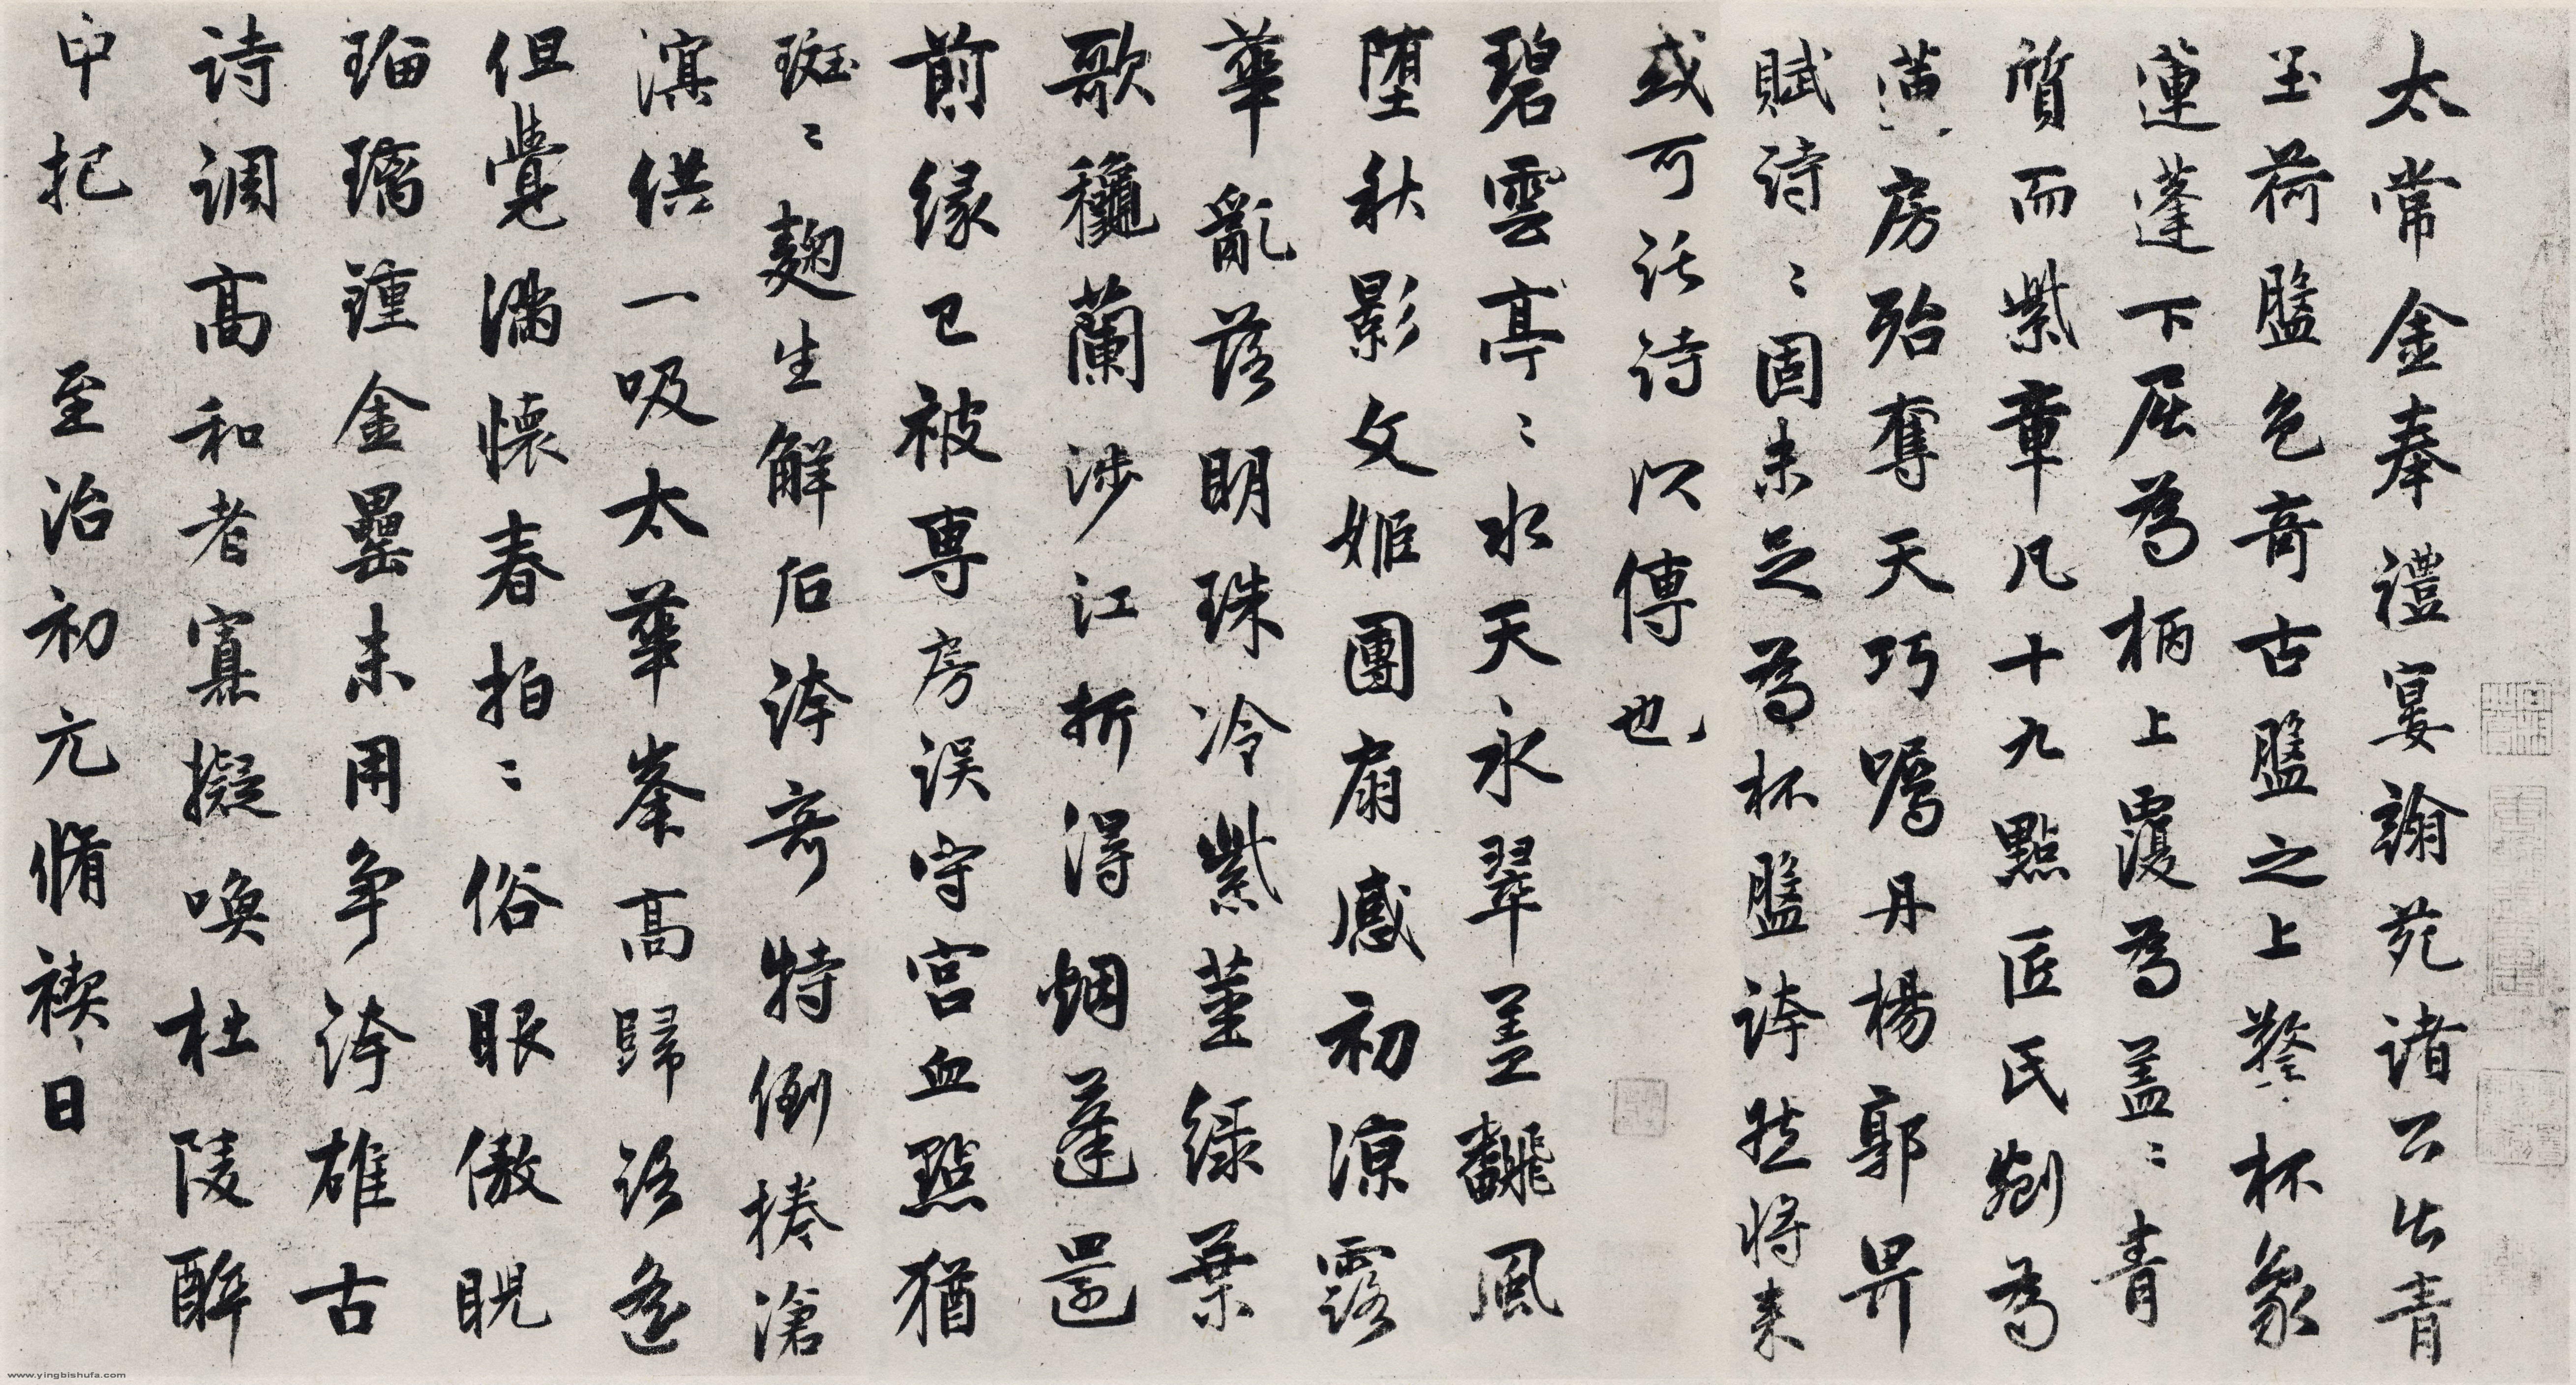 太常金奉禮宴翰苑諸公出青
玉荷盤色奇古盤之上擎杯象
蓮蓬下屈為柄上覆為蓋〻青
質而紫章凡十九點匠氏劌為
蓮房殆奪天巧嘱丹楊郭畀
賦詩〻固未足為杯盤誇然将来
或可託詩以傳也
碧雲亭〻水天永翠盖翻風
堕秋影文姬團扇感初涼露
華亂落明珠冷紫莖緑葉
歌猗蘭涉江折得烟蓬還
前緣已被專房误守宫血點猶
斑〻麹生解后誇奇特倒捲滄
溟供一吸太華峯高歸路遙
但覺滿懷春拍〻俗眼傲睨
瑠璃鍾金罍未用争誇雄古
詩調高和者寡擬喚杜陵醉
中把 至治初元脩禊日
www.yingbishufa.com